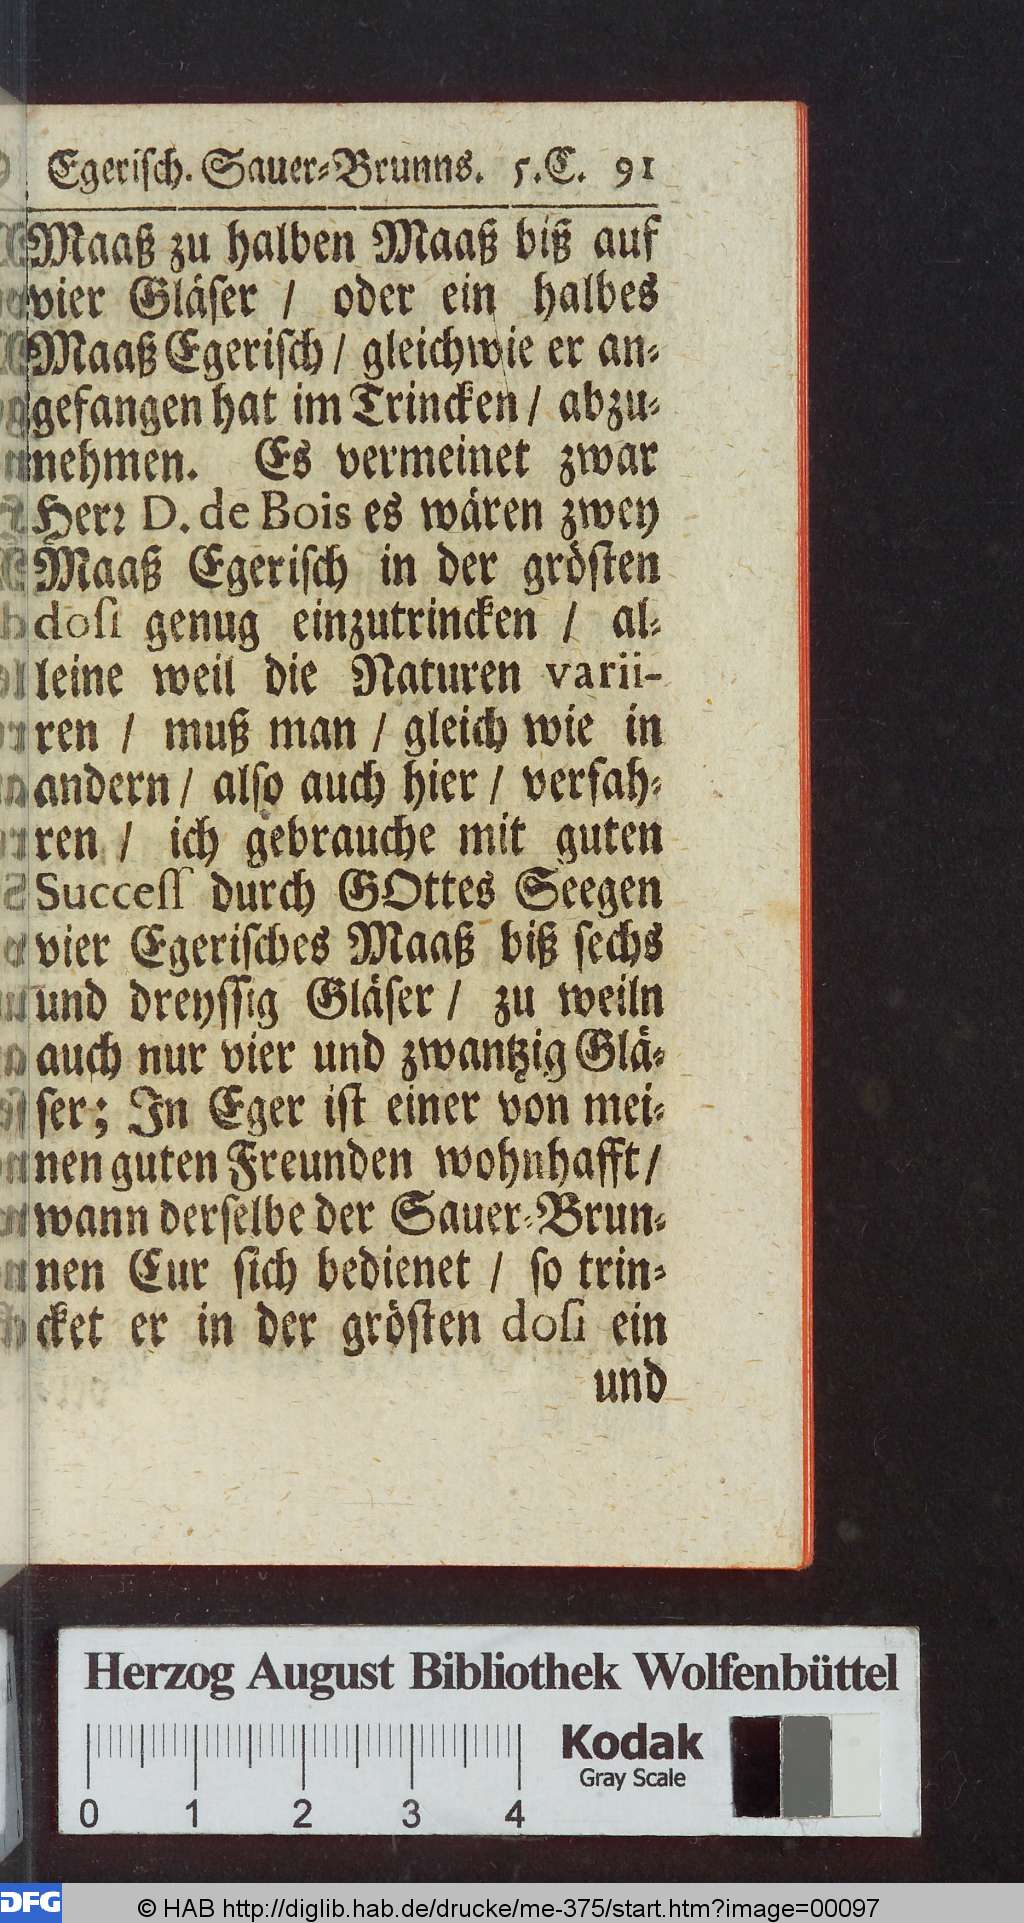 Egerisch. Sauer-Brunns. 5.C. 91
Maaß zu halben Maaß biß auf
vier Gläser / oder ein halbes
Maaß Egerisch / gleichwie er an-
gefangen hat im Trincken / abzu-
nehmen. Es vermeinet zwar
Herr D. de Bois es wären zwey
Maaß Egerisch in der grösten
dosi genug einzutrincken / al-
leine weil die Naturen varii-
ren / muß man / gleich wie in
andern / also auch hier / verfah-
ren / ich gebrauche mit guten
Success durch GOttes Seegen
vier Egerisches Maaß biß sechs
und dreyssig Gläser / zu weiln
auch nur vier und zwantzig Glä-
ser; In Eger ist einer von mei-
nen guten Freunden wohnhafft /
wann derselbe der Sauer-Brun-
nen Cur sich bedienet / so trin-
cket er in der grösten dosi ein
und
Herzog August Bibliothek Wolfenbüttel
Kodak
Gray Scale
0 1 2 3 4
DFG
© HAB http://diglib.hab.de/drucke/me-375/start.htm?image=00097